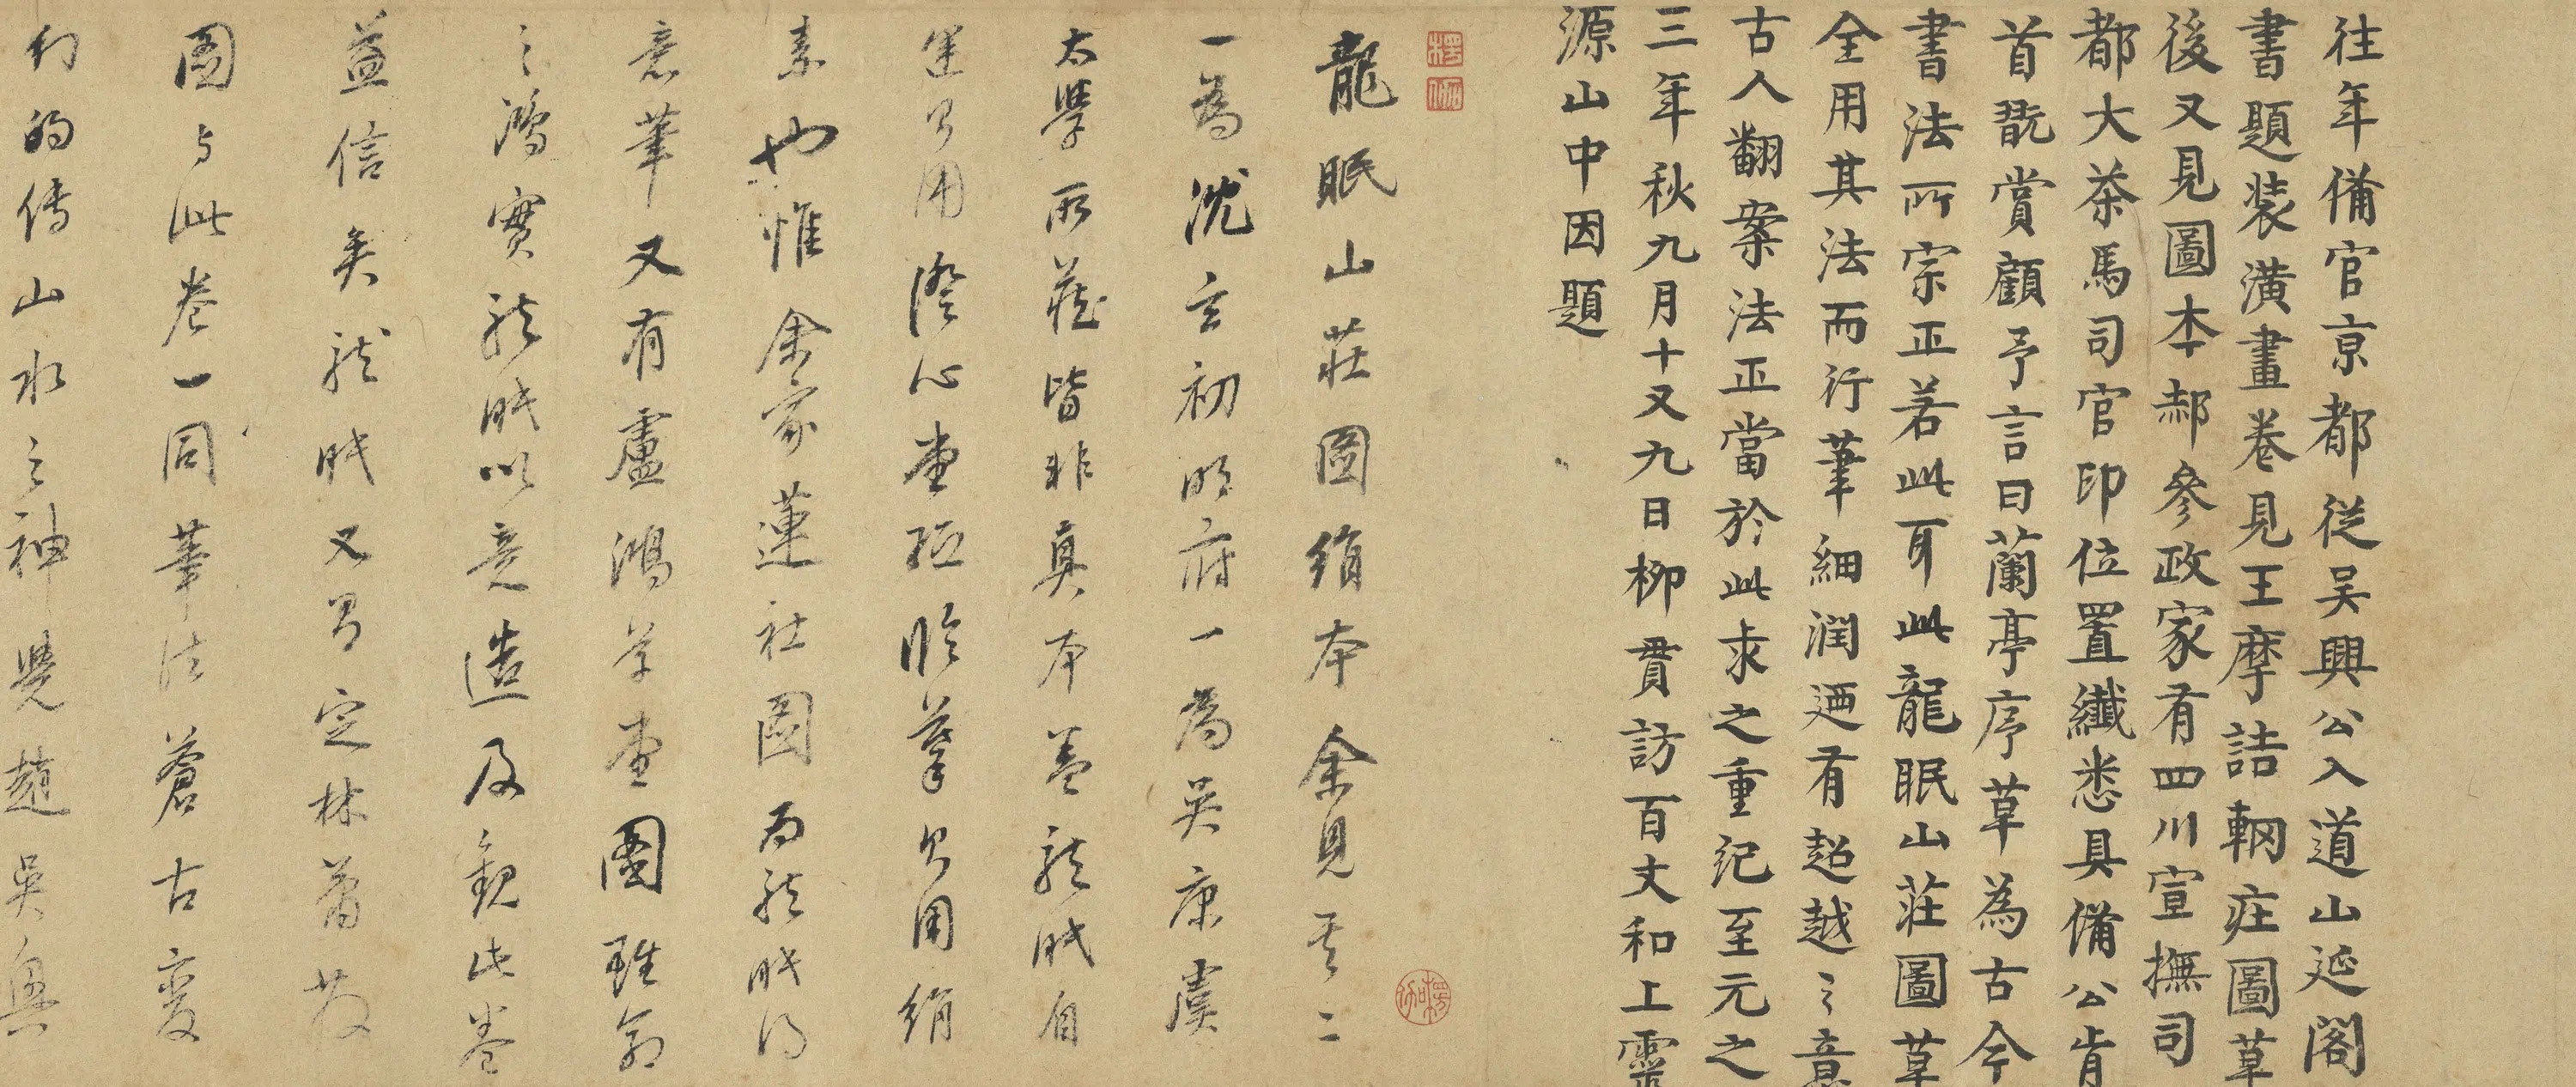 往年備官京都從吴興公入道山延閣
書題装潢畫卷見王摩詰輞庄圖草
後又見圖本郝參政家有四川宣撫司
都大茶馬司官印位置纖悉具備公肯
首翫賞顧予言曰蘭亭序草為古今
書法所宗正若此耳此龍眠山莊圖草
全用其法而行筆細潤迺有超越之意
古人翻案法正當於此求之重記至元之
三年秋九月十又九日柳貫訪百丈和上靈
源山中因題
龍眠山莊圖絹本余見其二
一為沈玄初明府一為吳康虞
太學所蔵皆非真本蓋龍眠自
運多用澄心堂紙臨摹多用絹
素也惟余家蓮社圖為龍眠得
意筆又有盧鴻草堂圖雖翁
之鴻實龍眠以意造及觀此卷
益信矣龍眠又有定林蕭散
圖与此卷一同筆法蒼古變
幻的傳山水之神覺趙吳興